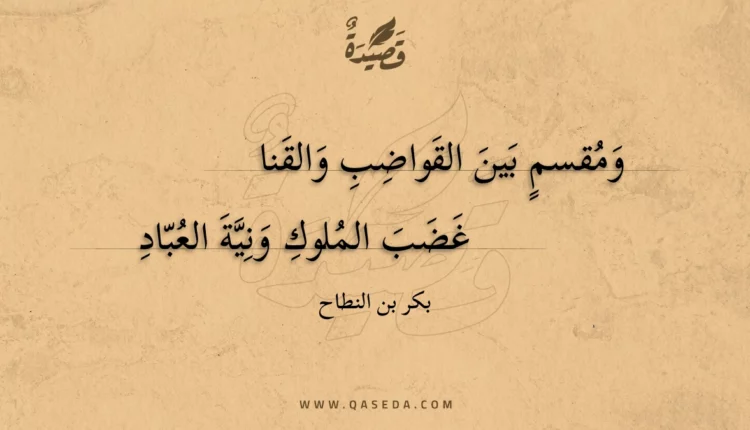 قَصِيْدَةٌ
وَمُقسمٍ بَينَ القَواضِبِ وَالقَنا
غَضَبَ المُلوكِ وَنِيَّةَ العُبّادِ
بكر بن النطاح
WWW.QASEDA.COM